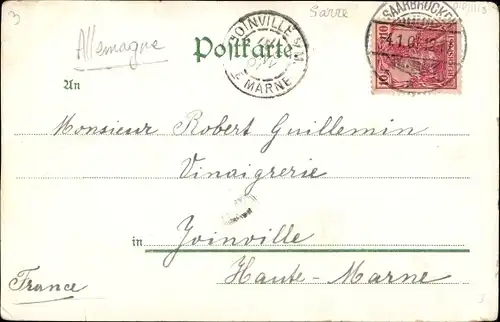 3
Sarre
Allemagne
Postkarte
JOINVILLE S/M
Hte MARNE
SAARBRÜCKEN
4.1.0
10 10
An
Monsieur Robert Guillemin
Vinaigrerie
in Joinville
France
Haute-Marne
3